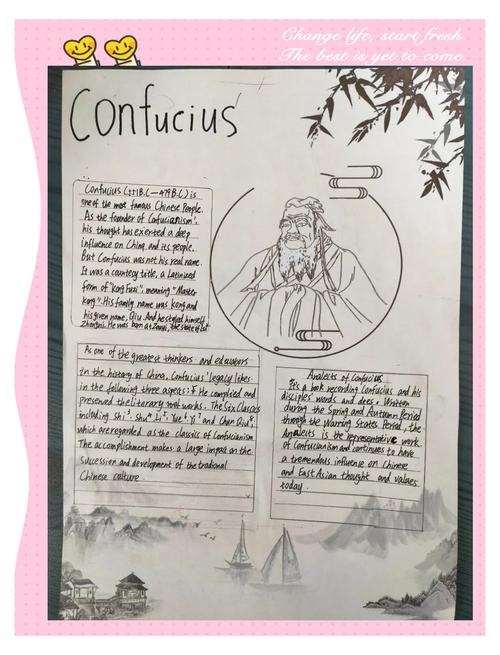 Change life, start fresh.
The best is yet to come.
Confucius
Confucius (551B.C—479B.C) is
one of the most famous Chinese People.
As the founder of Confucianism,
his thought has exerted a deep
influence on China and its people.
But Confucius was not his real name.
It was a courtesy title, a Latinized
form of "Kong Fuzi", meaning "Master
Kong". His family name was Kong and
his given name, Qiu. And he styled himself
Zhongni. He was born at Zouyi, the state of Lu
As one of the greatest thinkers and educators
in the history of China, Confucius' legacy likes
in the following three aspects: He compiled and
preserved the literary works. The Six Classics
including Shi, Shu, Li, Yue, Yi and Chun Qiu,
which are regarded as the classics of Confucianism.
The accomplishment makes a large impact on the
succession and development of the traditional
Chinese culture.
Analects of Confucius
It's a book recording Confucius and his
disciples' words and dees. Written
during the Spring and Autumn Period
through the Warring States Period, the
Analects is the representative work
of Confucianism and continues to have
a tremendous influence on Chinese
and East Asian thought and values
today.